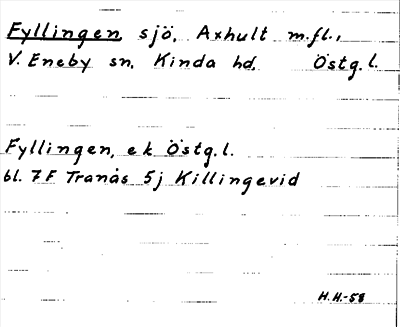 Fyllingen sjö, Axhult m.fl.,
V. Eneby sn, Kinda hd, Östg.l.
Fyllingen, ek Östg.l.
bl. 7F Tranås 5j Killingevid
H.H.-58